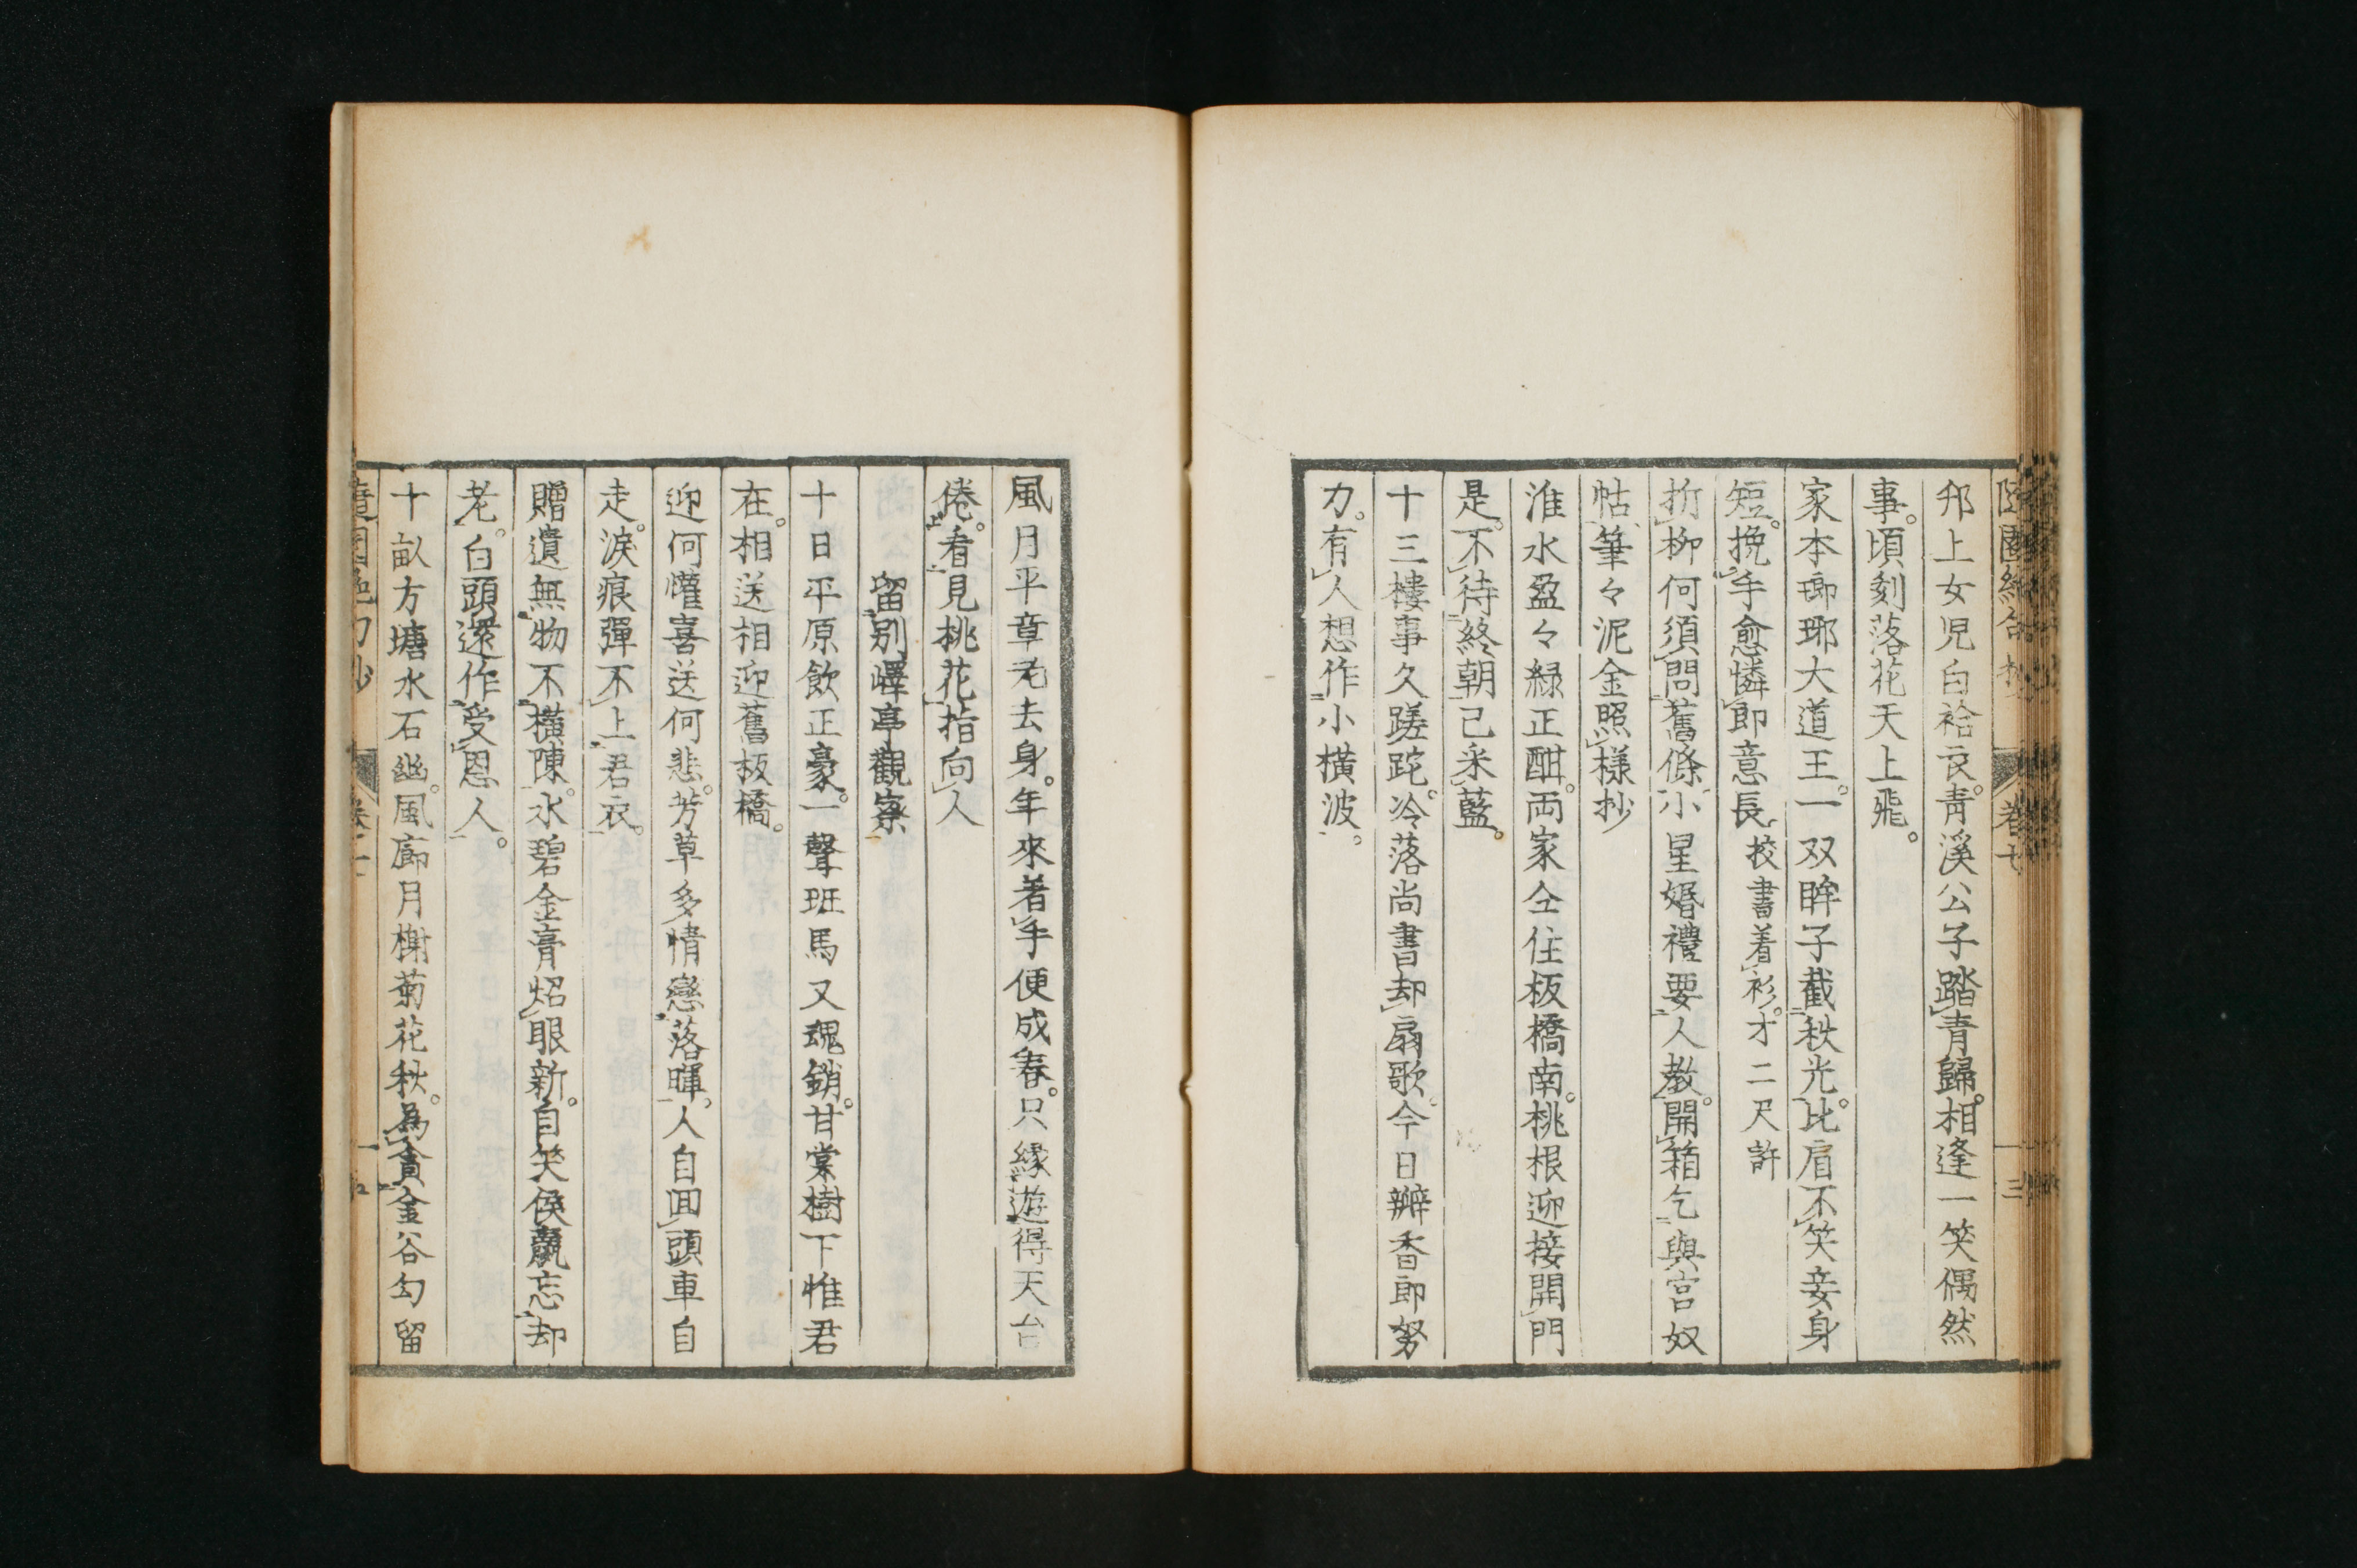 邗上女児白袷衣。青溪公子踏青歸。相逢一笑偶然
事。頃刻落花天上飛。
家本瑯琊大道王。一双眸子截秋光。比肩不笑妾身
短。挽手愈憐郎意長 挍書着衫。才二尺許
折柳何須問舊條小星婚禮要人教。開箱乞與宮奴
帖筆々泥金照様抄
淮水盈々緑正酣。両家仝住板橋南。桃根迎接開門
是。不待終朝已采藍。
十三樓事久蹉跎。冷落尚書却扇歌。今日瓣香郎努
力。有人想作小橫波。
風月平章老去身。年來著手便成春。只緣遊得天台
倦。看見桃花指向人
留別嶧亭觀察
十日平原飲正豪。一聲班馬又魂銷。甘棠樹下惟君
在。相送相迎舊板橋。
迎何懽喜送何悲。芳草多情戀落暉。人自回頭車自
走。淚痕彈不上君衣。
贈遺無物不橫陳。水碧金膏炤眼新。自笑侯嬴忘却
老。白頭還作受恩人。
十畝方塘水石幽。風廊月榭菊花秋。為貪金谷勾留